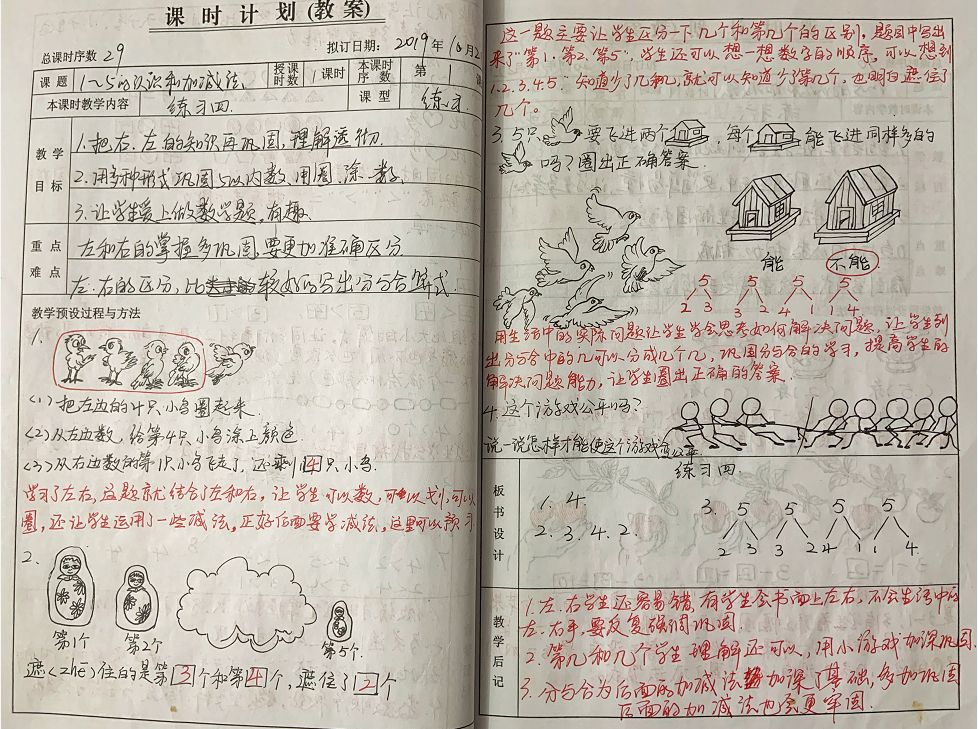 课 时 计 划 (教 案)
总课时序数 29 拟订日期: 2019年10月2
课 题 1~5的认识和加减法. 授课时数 1课时 本课时序 数 第 1
本课时教学内容 练习四. 课 型 练习.
教 学 目 标
1.把右、左的知识再巩固,理解透彻.
2.用多种形式巩固5以内数、用圈、涂、数.
3.让学生爱上做数学题,有趣.
重 点 难 点
左和右的掌握多巩固,要更加准确区分
左、右的区分,比较好的写出分与合算式.
教学预设过程与方法
1.
(1)把左边的4只小鸟圈起来.
(2)从左边数,给第4只小鸟涂上颜色.
(3)从右边数的第1只小鸟飞走了,还剩4只小鸟.
学习了左右,这题就结合了左和右,让学生可以数,可以划,可以
圈,还让学生运用了一些减法,正好后面要学减法,这里可以预习.
2.
第1个 第2个 第5个.
遮(zhē)住的是第3个和第4个,遮住了2个
这一题主要让学生区分一下几个和第几个的区别,题目中写出
来了"第1、第2、第5",学生还可以想一想数字的顺序,可以想到
1.2.3.4.5.知道少了几和几,就可以知道少了第几个,也明白遮住了
几个。
3.5只 要飞进两个 ,每个 能飞进同样多的
吗?圈出正确答案.
能 不能
5 5 5 5
2 3 3 2 4 1 1 4
用生活中的实际问题让学生学会思考如何解决问题,让学生列
出分与合中的几可以分成几个几,巩固分与合的学习,提高学生的
解决问题能力,让学生圈出正确的答案.
4.这个游戏公平吗?
说一说怎样才能使这个游戏公平.
板 书 设 计
练习四
1. 4.
2. 3. 4. 2.
3. 5 5 5 5
2 3 3 2 4 1 1 4
教 学 后 记
1.左、右学生还容易错,有学生会书面上左右,不会生活中的
左、右手,要反复强调巩固.
2.第几和几个学生理解还可以,用小游戏加深巩固.
3.分与合为后面的加减法加深了基础,多加巩固
后面的加减法也会更牢固.